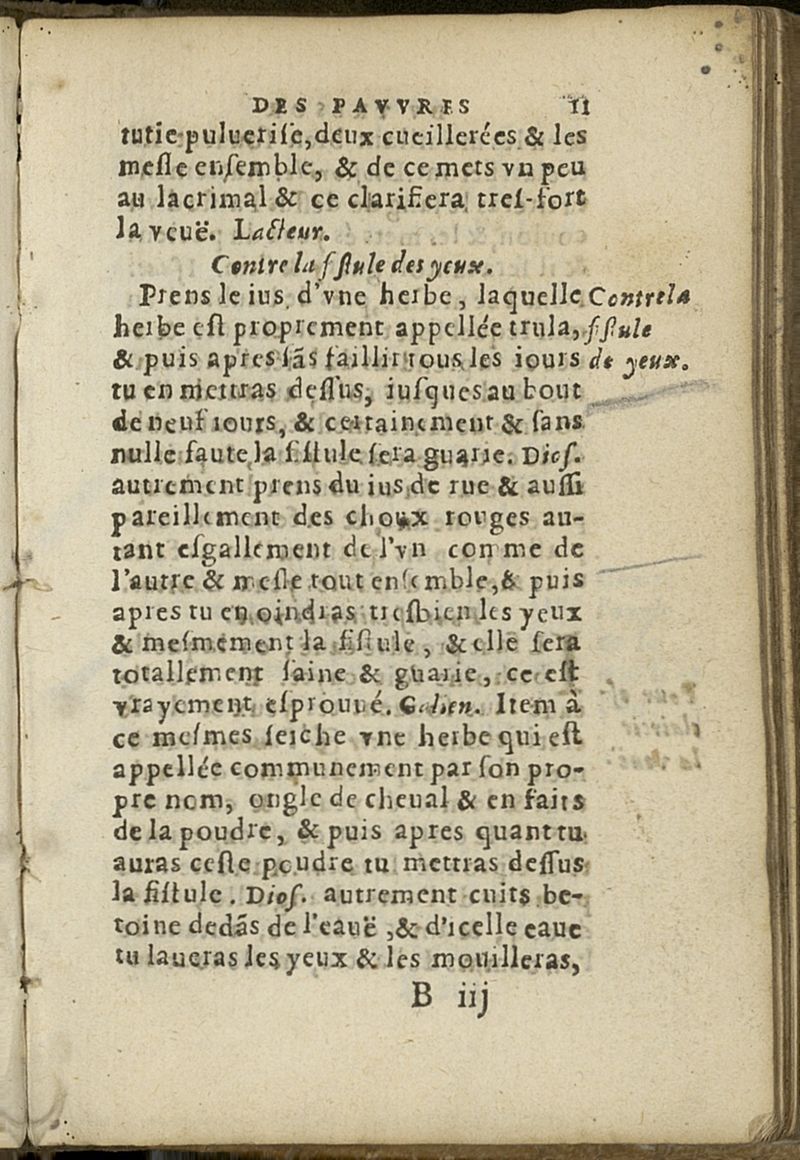 DES PAVVRES 11
tutie pulueriſée, deux cueillerées & les
meſle enſemble, & de ce mets vn peu
au lacrimal & ce clarifiera treſ-fort
la veuë. Lacteur.
Contre la fiſtule des yeux.
Prens le ius d'vne herbe, laquelle
herbe eſt proprement appellée trula,
& puis apres ſãs faillir tous les iours
tu en mettras deſſus, iuſques au bout
de neuf iours, & certainement & ſans
nulle faute la fiſtule ſera guarie. Dioſ.
autrement prens du ius de rue & auſſi
pareillement des choux rouges au-
tant eſgallement de l'vn comme de
l'autre & meſle tout enſemble, & puis
apres tu en oindras treſbien les yeux
& meſmement la fiſtule, & elle ſera
totallement ſaine & guarie, ce eſt
vrayement eſprouué. Galien. Item à
ce meſmes ſeiche vne herbe qui eſt
appellée communement par ſon pro-
pre nom, ongle de cheual & en faits
de la poudre, & puis apres quant tu
auras ceſte poudre tu mettras deſſus
la fiſtule. Dioſ. autrement cuits be-
toine dedãs de l'eauë, & d'icelle eaue
tu laueras les yeux & les mouilleras,
B iij
Contre la
fiſtule
de yeux.